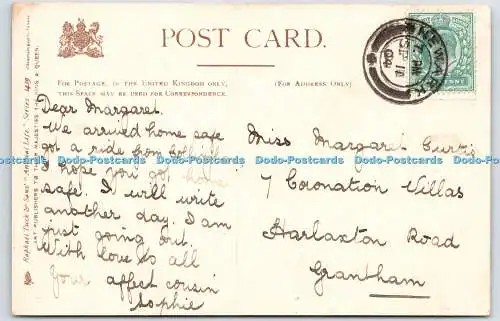 POST CARD.
FOR POSTAGE IN THE UNITED KINGDOM ONLY,
THIS SPACE MAY BE USED FOR CORRESPONDENCE.
(FOR ADDRESS ONLY)
NEWARK
Raphael Tuck & Sons' "Animal Life" Series 1429
ART PUBLISHERS TO THEIR MAJESTIES THE KING & QUEEN.
Dear Margaret.
We arrived home safe
got a ride from
I hope you got home
safe. I will write
another day. I am
just going out.
With love to all
Your affect cousin
Sophie
Miss Margaret Curtis
7 Coronation Villas
Harlaxton Road
Grantham
Dodo-Postcards Dodo-Postcards Dodo-Postcards Dodo-Postcards Dodo-Postcards